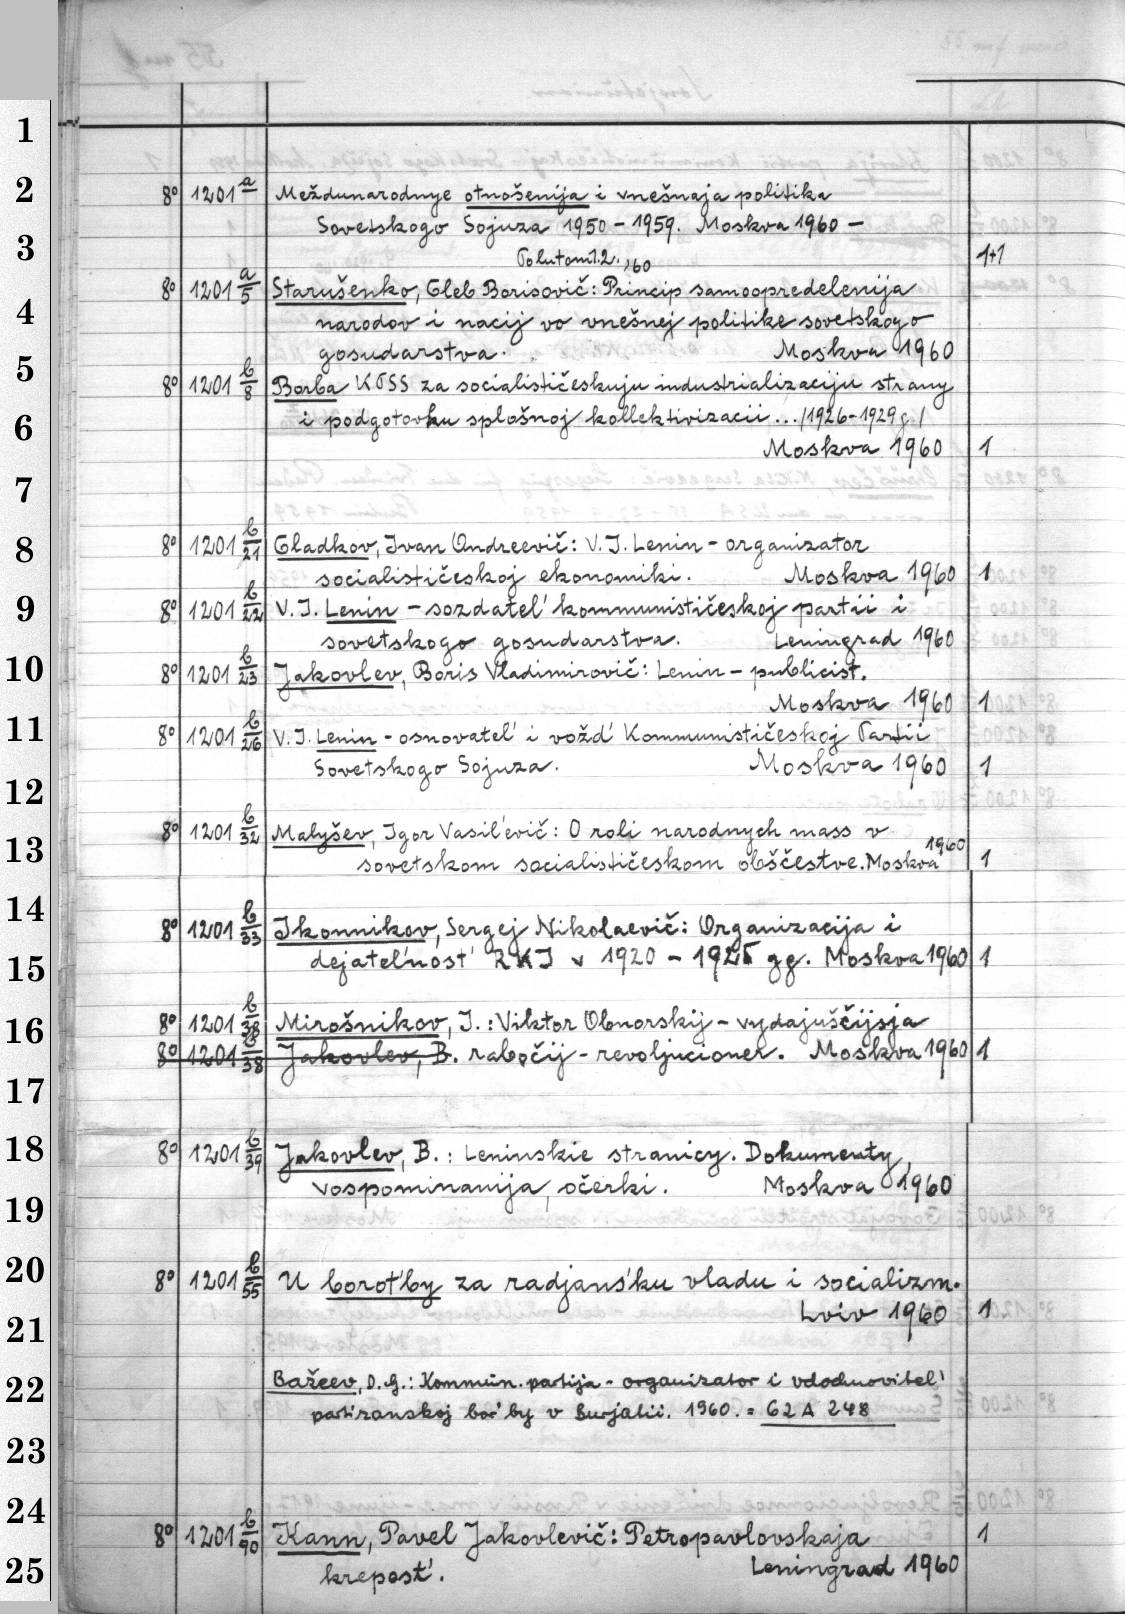 1
2
8° 1201 a Meždunarodnye otnošenija i vnešnaja politika
Sovetskogo Sojuza 1950 - 1959. Moskva 1960 -
3
Polutom 1.2. ,60 1+1
8° 1201 a/5 Starušenko, Gleb Borisovič: Princip samoopredelenija
4
narodov i nacij vo vnešnej politike sovetskogo
gosudarstva. Moskva 1960
5
8° 1201 b/8 Borba KPSS za socialističeskuju industrializaciju strany
6
i podgotovku splošnoj kollektivizacii ... /1926-1929 g./
Moskva 1960 1
7
8
8° 1201 b/21 Gladkov, Ivan Andreevič: V. I. Lenin - organizator
socialističeskoj ekonomiki. Moskva 1960 1
9
8° 1201 b/22 V. I. Lenin - sozdatel' kommunističeskoj partii i
sovetskogo gosudarstva. Leningrad 1960
10
8° 1201 b/23 Jakovlev, Boris Vladimirovič: Lenin - publicist.
Moskva 1960 1
11
8° 1201 b/26 V. I. Lenin - osnovatel' i vožd' Kommunističeskoj Partii
Sovetskogo Sojuza. Moskva 1960 1
12
8° 1201 b/32 Malyšev, Igor Vasil'evič: O roli narodnych mass v
13
sovetskom socialističeskom obščestve. Moskva 1960 1
14
8° 1201 b/33 Ikonnikov, Sergej Nikolaevič: Organizacija i
15
dejatel'nost' RKI v 1920 - 1925 gg. Moskva 1960 1
16
8° 1201 b/38 Mirošnikov, I.: Viktor Obnorskij - vydajuščijsja
8° 1201 b/38 Jakovlev, B. rabočij - revoljucioner. Moskva 1960 1
17
18
8° 1201 b/39 Jakovlev, B.: Leninskie stranicy. Dokumenty,
vospominanija, očerki. Moskva 1960
19
20
8° 1201 b/55 U borot'by za radjans'ku vladu i socializm.
Lviv 1960 1
21
22
Bažeev, D. G.: Kommun. partija - organizator i vdochnovitel'
partizanskoj bor'by v Burjatii. 1960. = 62 A 248
23
24
8° 1201 b/90 Kann, Pavel Jakovlevič: Petropavlovskaja 1
25
krepost'. Leningrad 1960